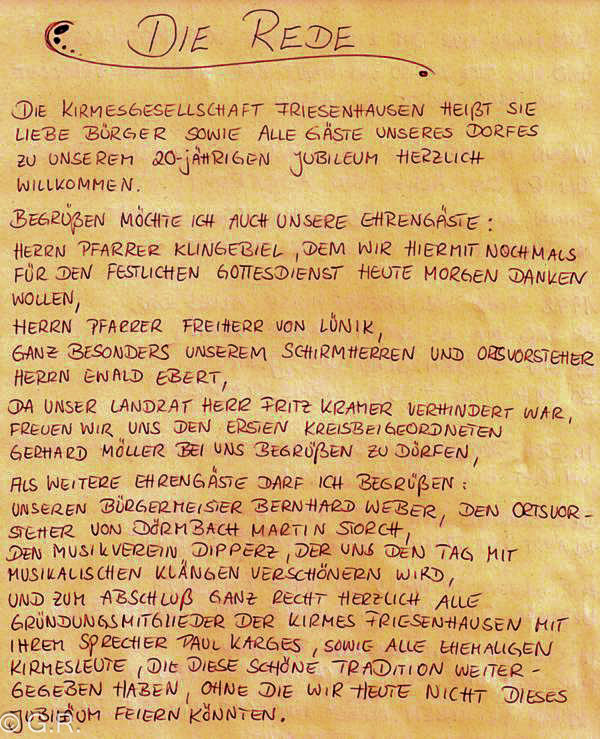 DIE REDE
DIE KIRMESGESELLSCHAFT FRIESENHAUSEN HEIßT SIE
LIEBE BÜRGER SOWIE ALLE GÄSTE UNSERES DORFES
ZU UNSEREM 20-JÄHRIGEN JUBILEUM HERZLICH
WILLKOMMEN.
BEGRÜßEN MÖCHTE ICH AUCH UNSERE EHRENGÄSTE:
HERRN PFARRER KLINGEBIEL, DEM WIR HIERMIT NOCHMALS
FÜR DEN FESTLICHEN GOTTESDIENST HEUTE MORGEN DANKEN
WOLLEN,
HERRN PFARRER FREIHERR VON LÜNIK,
GANZ BESONDERS UNSEREM SCHIRMHERREN UND ORTSVORSTEHER
HERRN EWALD EBERT,
DA UNSER LANDRAT HERR FRITZ KRAMER VERHINDERT WAR,
FREUEN WIR UNS DEN ERSTEN KREISBEIGEORDNETEN
GERHARD MÖLLER BEI UNS BEGRÜßEN ZU DÜRFEN,
ALS WEITERE EHRENGÄSTE DARF ICH BEGRÜßEN:
UNSEREN BÜRGERMEISTER BERNHARD WEBER, DEN ORTSVOR-
STEHER VON DÖRMBACH MARTIN STORCH,
DEN MUSIKVEREIN DIPPERZ, DER UNS DEN TAG MIT
MUSIKALISCHEN KLÄNGEN VERSCHÖNERN WIRD,
UND ZUM ABSCHLUß GANZ RECHT HERZLICH ALLE
GRÜNDUNGSMITGLIEDER DER KIRMES FRIESENHAUSEN MIT
IHREM SPRECHER PAUL KARGES, SOWIE ALLE EHEMALIGEN
KIRMESLEUTE, DIE DIESE SCHÖNE TRADITION WEITER-
GEGEBEN HABEN, OHNE DIE WIR HEUTE NICHT DIESES
JUBILÄUM FEIERN KÖNNTEN.
©G.R.